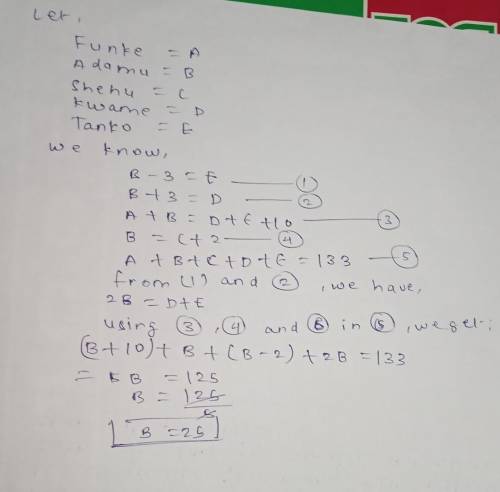 Let,
Funke = A
Adamu = B
Shehu = C
Kwame = D
Tanko = E
we know,
B - 3 = E ——— ①
B + 3 = D —— ②
A + B = D + E + 10 ——— ③
B = C + 2 —— ④
A + B + C + D + E = 133 —— ⑤
from (1) and ②, we have,
2B = D + E
using ③, ④ and ⑥ in ⑤, we get:
(B + 10) + B + (B - 2) + 2B = 133
= 5B = 125
B = 125
5
B = 25